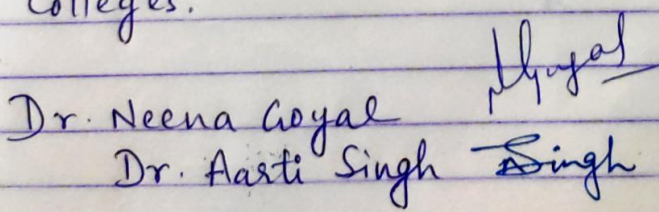 Colleges.
Dr. Neena Goyal NGoyal
Dr. Aarti Singh ASingh